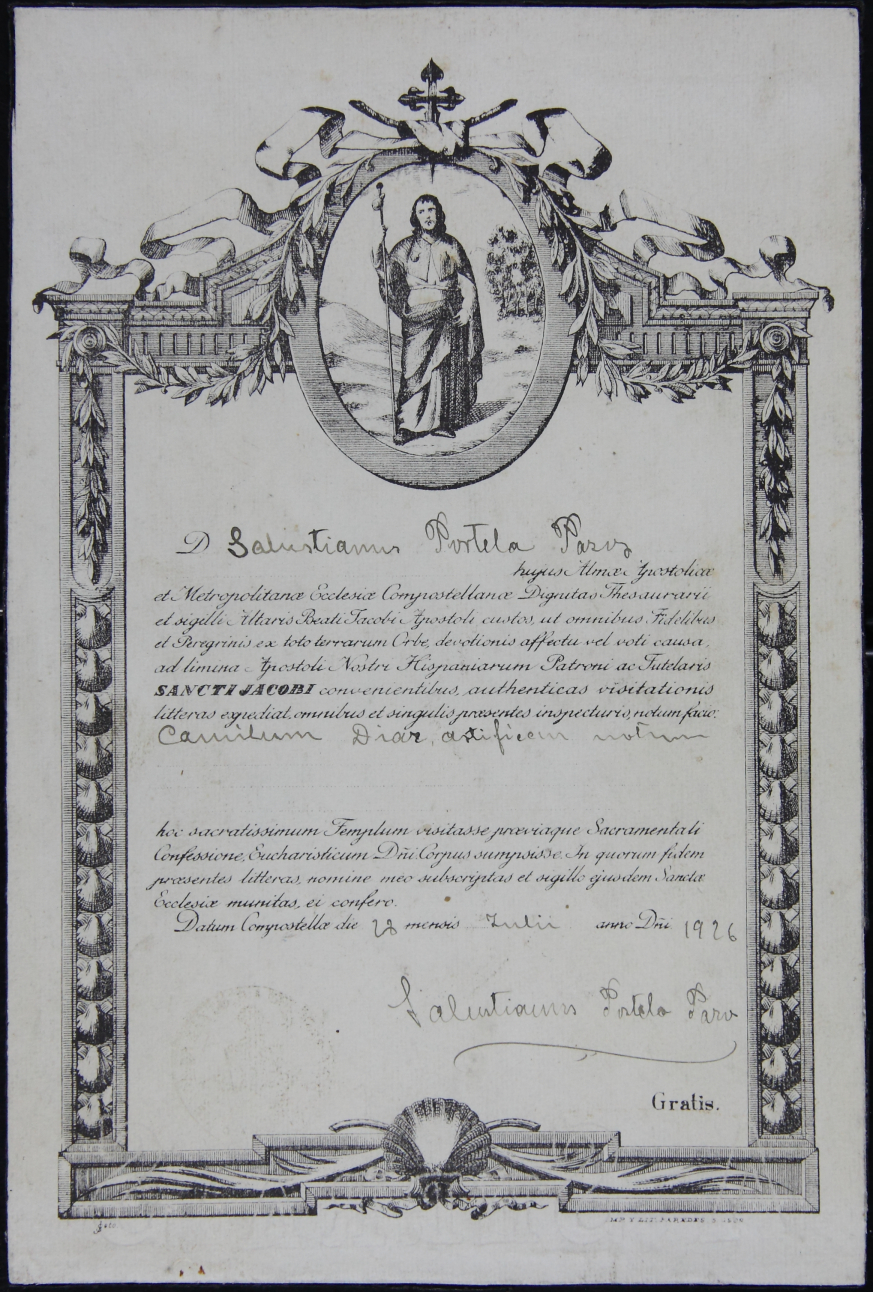 D Salustianus Portela Pazos
hujus Almæ Apostolicæ
et Metropolitanæ Ecclesiæ Compostellanæ Dignitas Thesaurarii
et sigilli Altaris Beati Jacobi Apostoli custos, ut omnibus Fidelibus
et Peregrinis ex toto terrarum Orbe, devotionis affectu vel voti causa,
ad limina Apostoli Nostri Hispaniarum Patroni ac Tutelaris
SANCTI JACOBI convenientibus, authenticas visitationis
litteras expediat, omnibus et singulis præsentes inspecturis, notum facio:
Camilum Diaz, artificem notum
hoc sacratissimum Templum visitasse præviaque Sacramentali
Confessione, Eucharisticum Dñi. Corpus sumpsisse. In quorum fidem
præsentes litteras, nomine meo subscriptas et sigillo ejusdem Sanctæ
Ecclesiæ munitas, ei confero.
Datum Compostellæ die 28 mensis Iulii anno Dñi 1926
Salustianus Portela Pazos
Gratis.
IMP. Y LIT. PAREDES